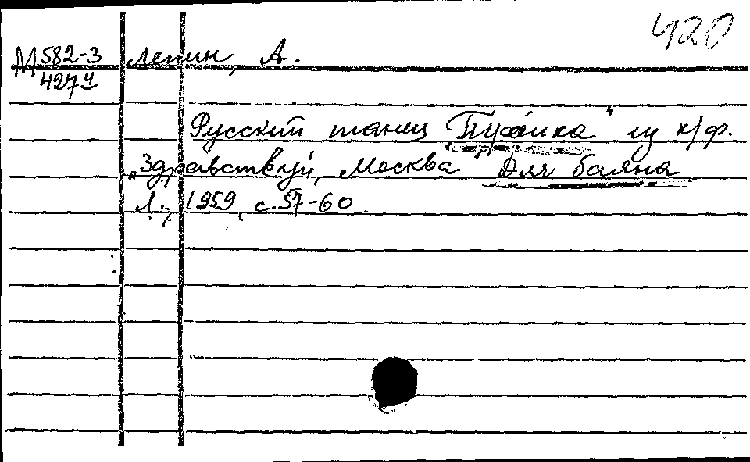 420
М 582-3 Лепин, А.
4274
Русский танец "Тройка" из к/ф.
"Здравствуй, Москва" Для баяна
Л., 1959, с.57-60